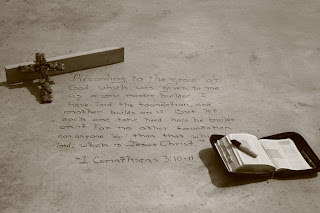 "According to the grace of
God which was given to me
as a wise master builder I
have laid the foundation, and
another builds on it But let
each one take heed how he builds
on it For no other foundation
can anyone lay than that which
laid, which is Jesus Christ"
I Corinthians 3:10-11